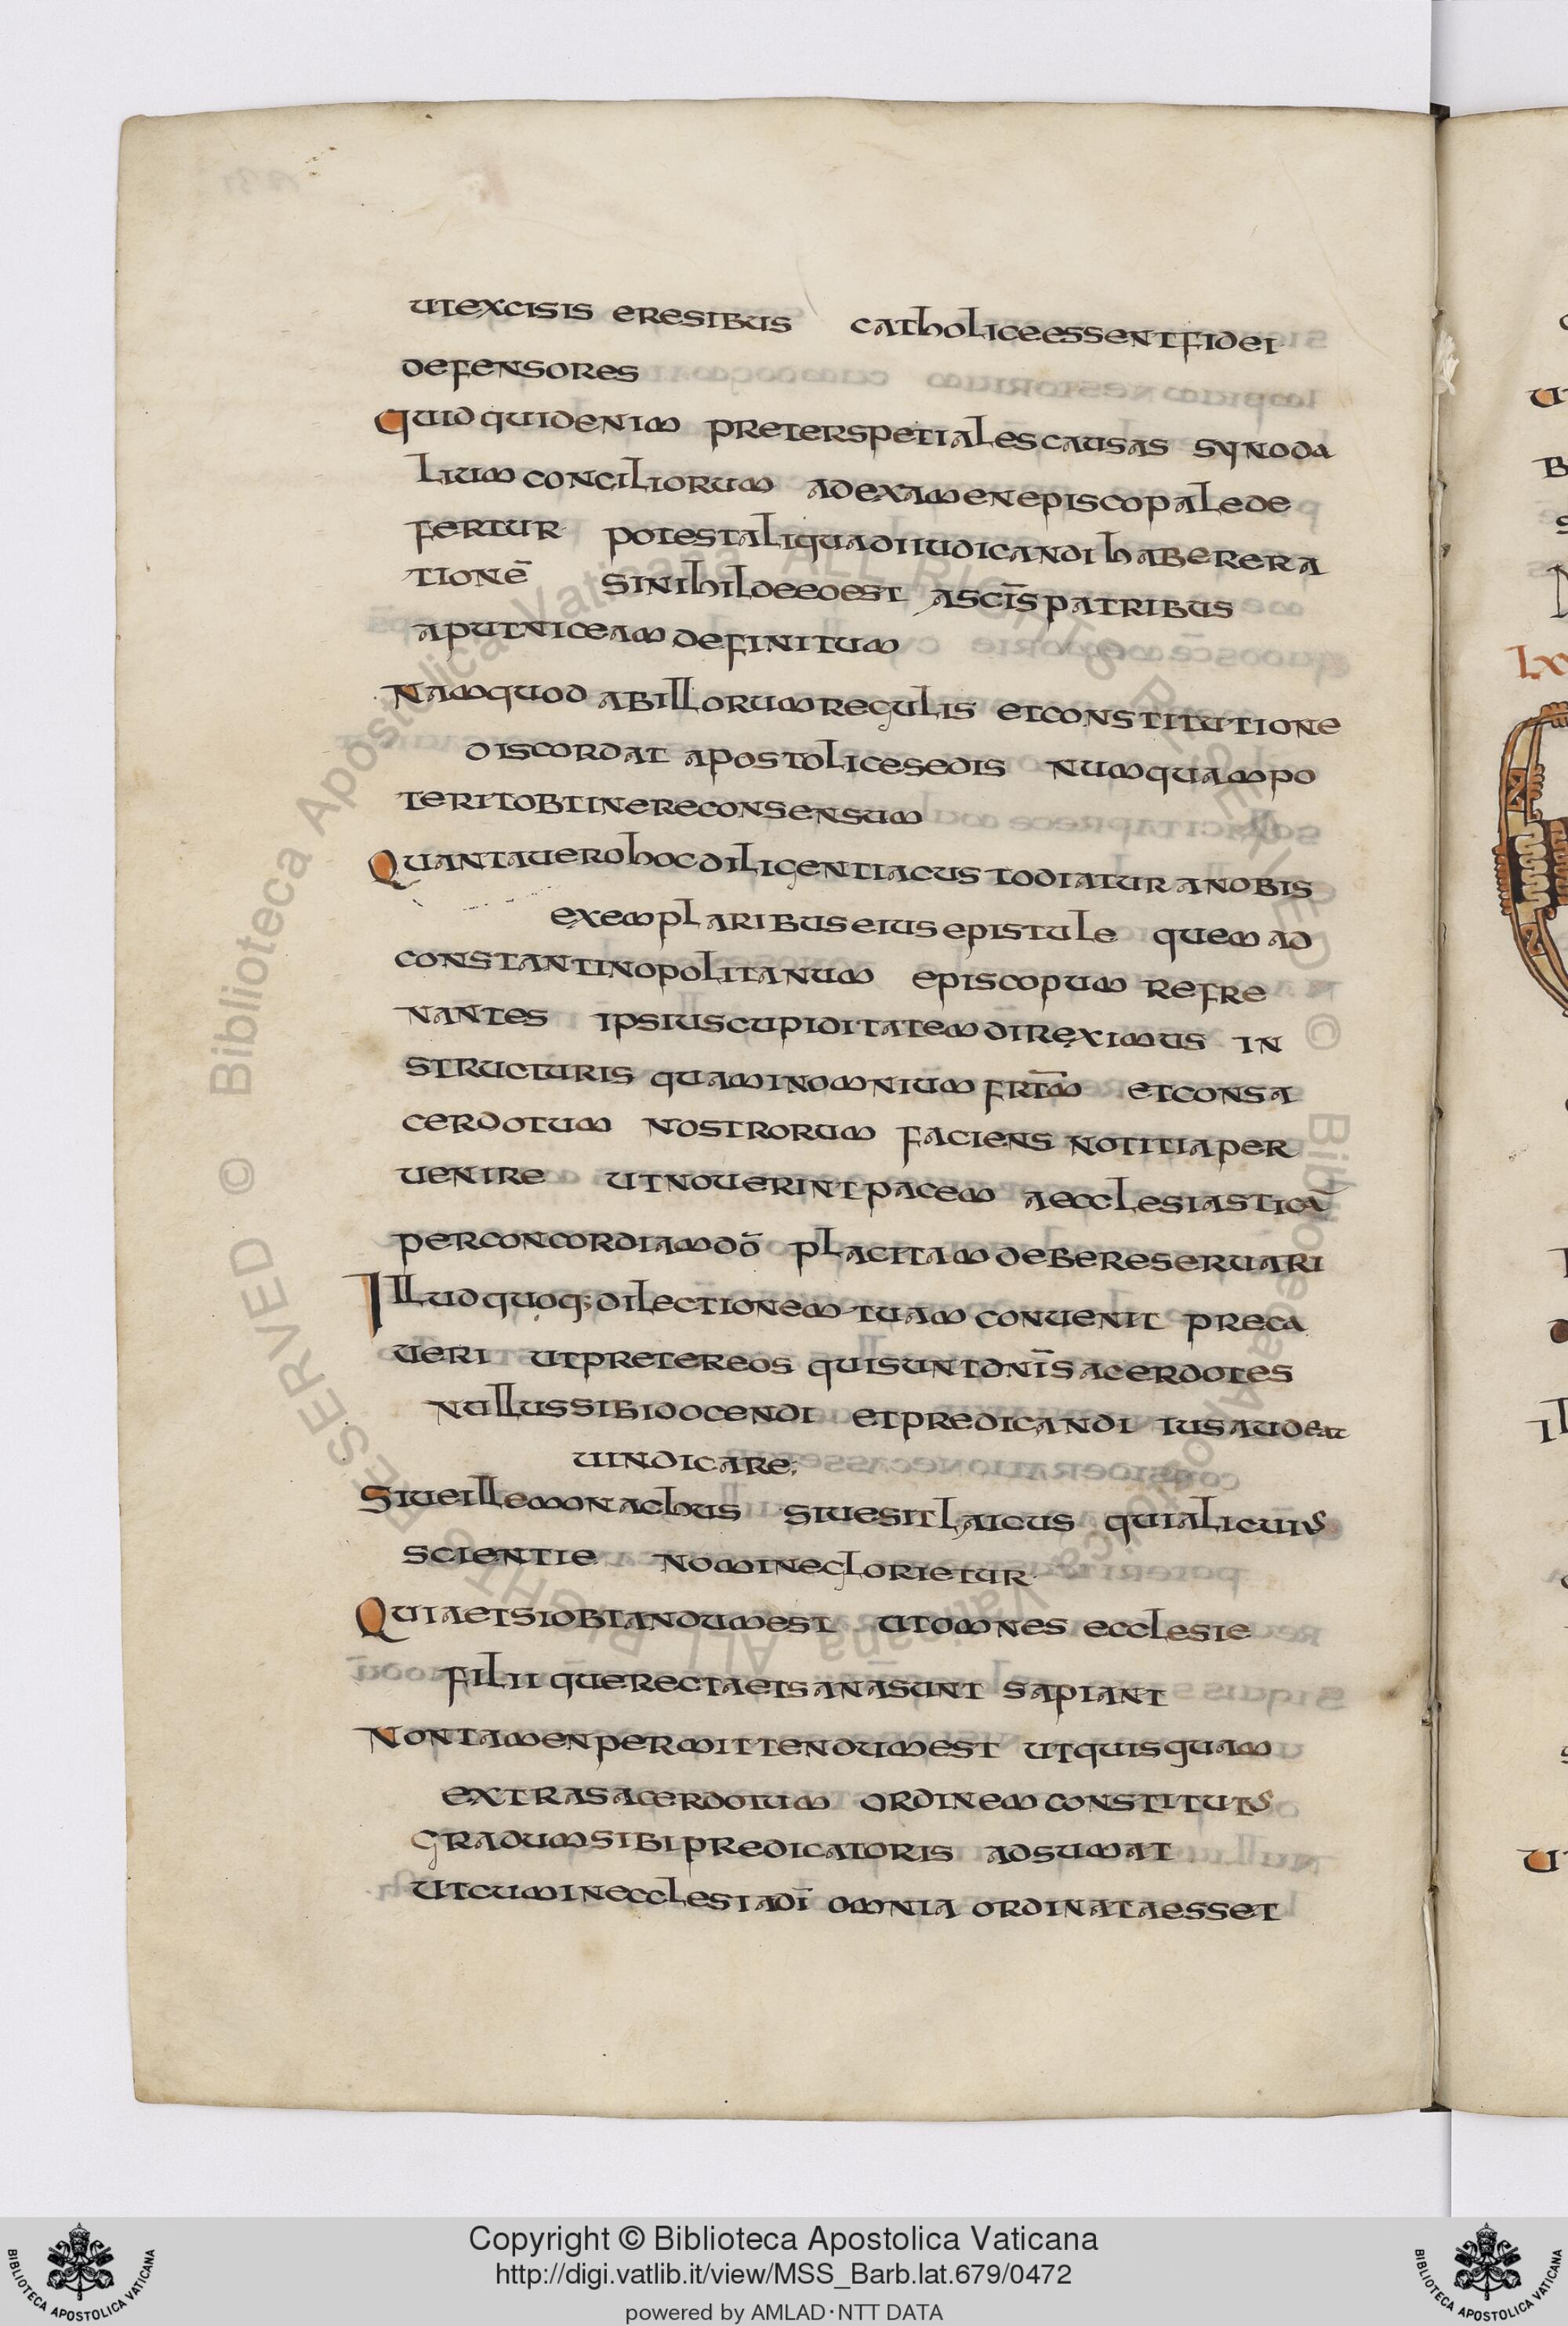 utexcisis eresibus catholiceessentfidei
defensores
Quidquidenim preterspetialescausas synoda
lium conciliorum adexamenepiscopalede
fertur potestaliquadiiudicandi haberera
tionē sinihildeeoest ascīspatribus
aputniceam definitum
Namquod abillorumregulis etconstitutione
discordat apostolicesedis numquampo
teritobtinereconsensum
Quantaverohocdiligentiacustodiatur anobis
exemplaribuseiusepistule quem ad
constantinopolitanum episcopum refre
nantes ipsiuscupiditatemdireximus in
structuris quaminomnium frtm̄ etconsa
cerdotum nostrorum faciens notitiaper
uenire utnouerintpacem aecclesiasticā
perconcordiamdō placitam debereseruari
Illudquoq; dilectionem tuam conuenit preca
ueri utpretereos quisuntdnīsacerdotes
nullussibidocendi etpredicandi iusaudeat
uindicare;
Siueillemonachus siuesitlaicus quialicuius
scientie nomineglorietur
Quiaetsiobtandumest utomnes ecclesie
filii querectaetsanasunt sapiant
Nontamenpermittendumest utquisquam
extrasacerdotum ordinem constitutus
gradumsibipredicatoris adsumat
utcuminecclesiadī omnia ordinataesset
Copyright © Biblioteca Apostolica Vaticana
http://digi.vatlib.it/view/MSS_Barb.lat.679/0472
powered by AMLAD·NTT DATA
BIBLIOTECA APOSTOLICA VATICANA
BIBLIOTECA APOSTOLICA VATICANA